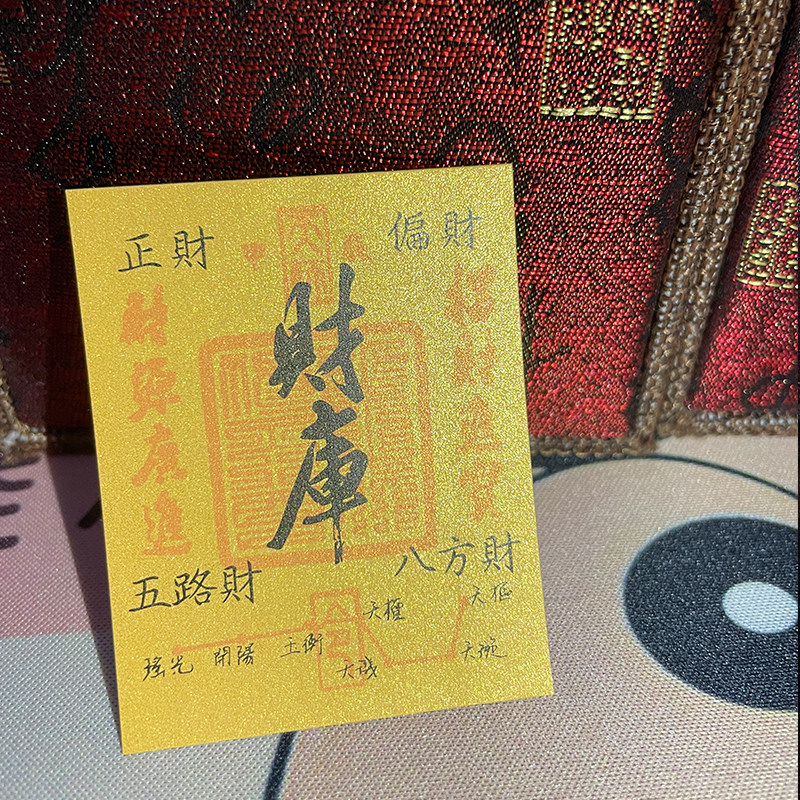 正財
偏財
財庫
財源廣進
招財進寶
五路財
八方財
天權
天樞
瑤光 開陽 玉衡
天璣
天璇